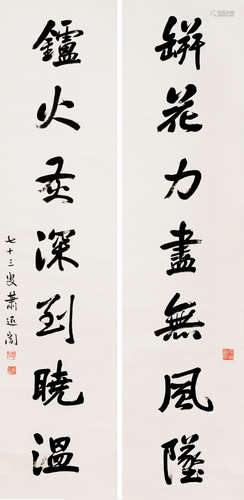 缾花力盡無風墜
鑪火灰深到曉溫
七十三叟蕭退闇